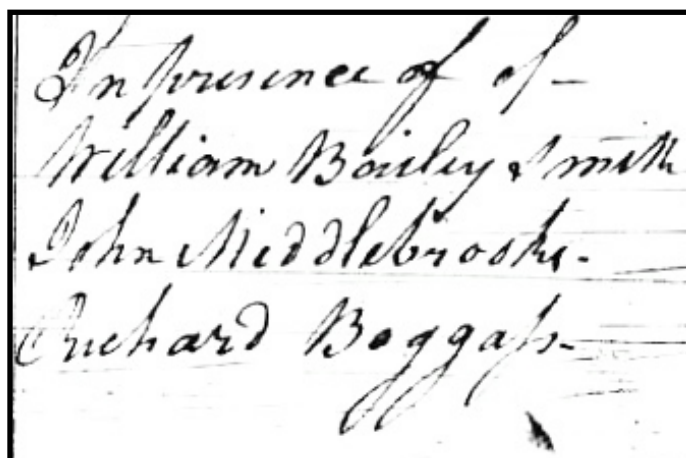 In presence of of —
William Bailey Smith
John Middlebrooks.
Richard Boggaſs.